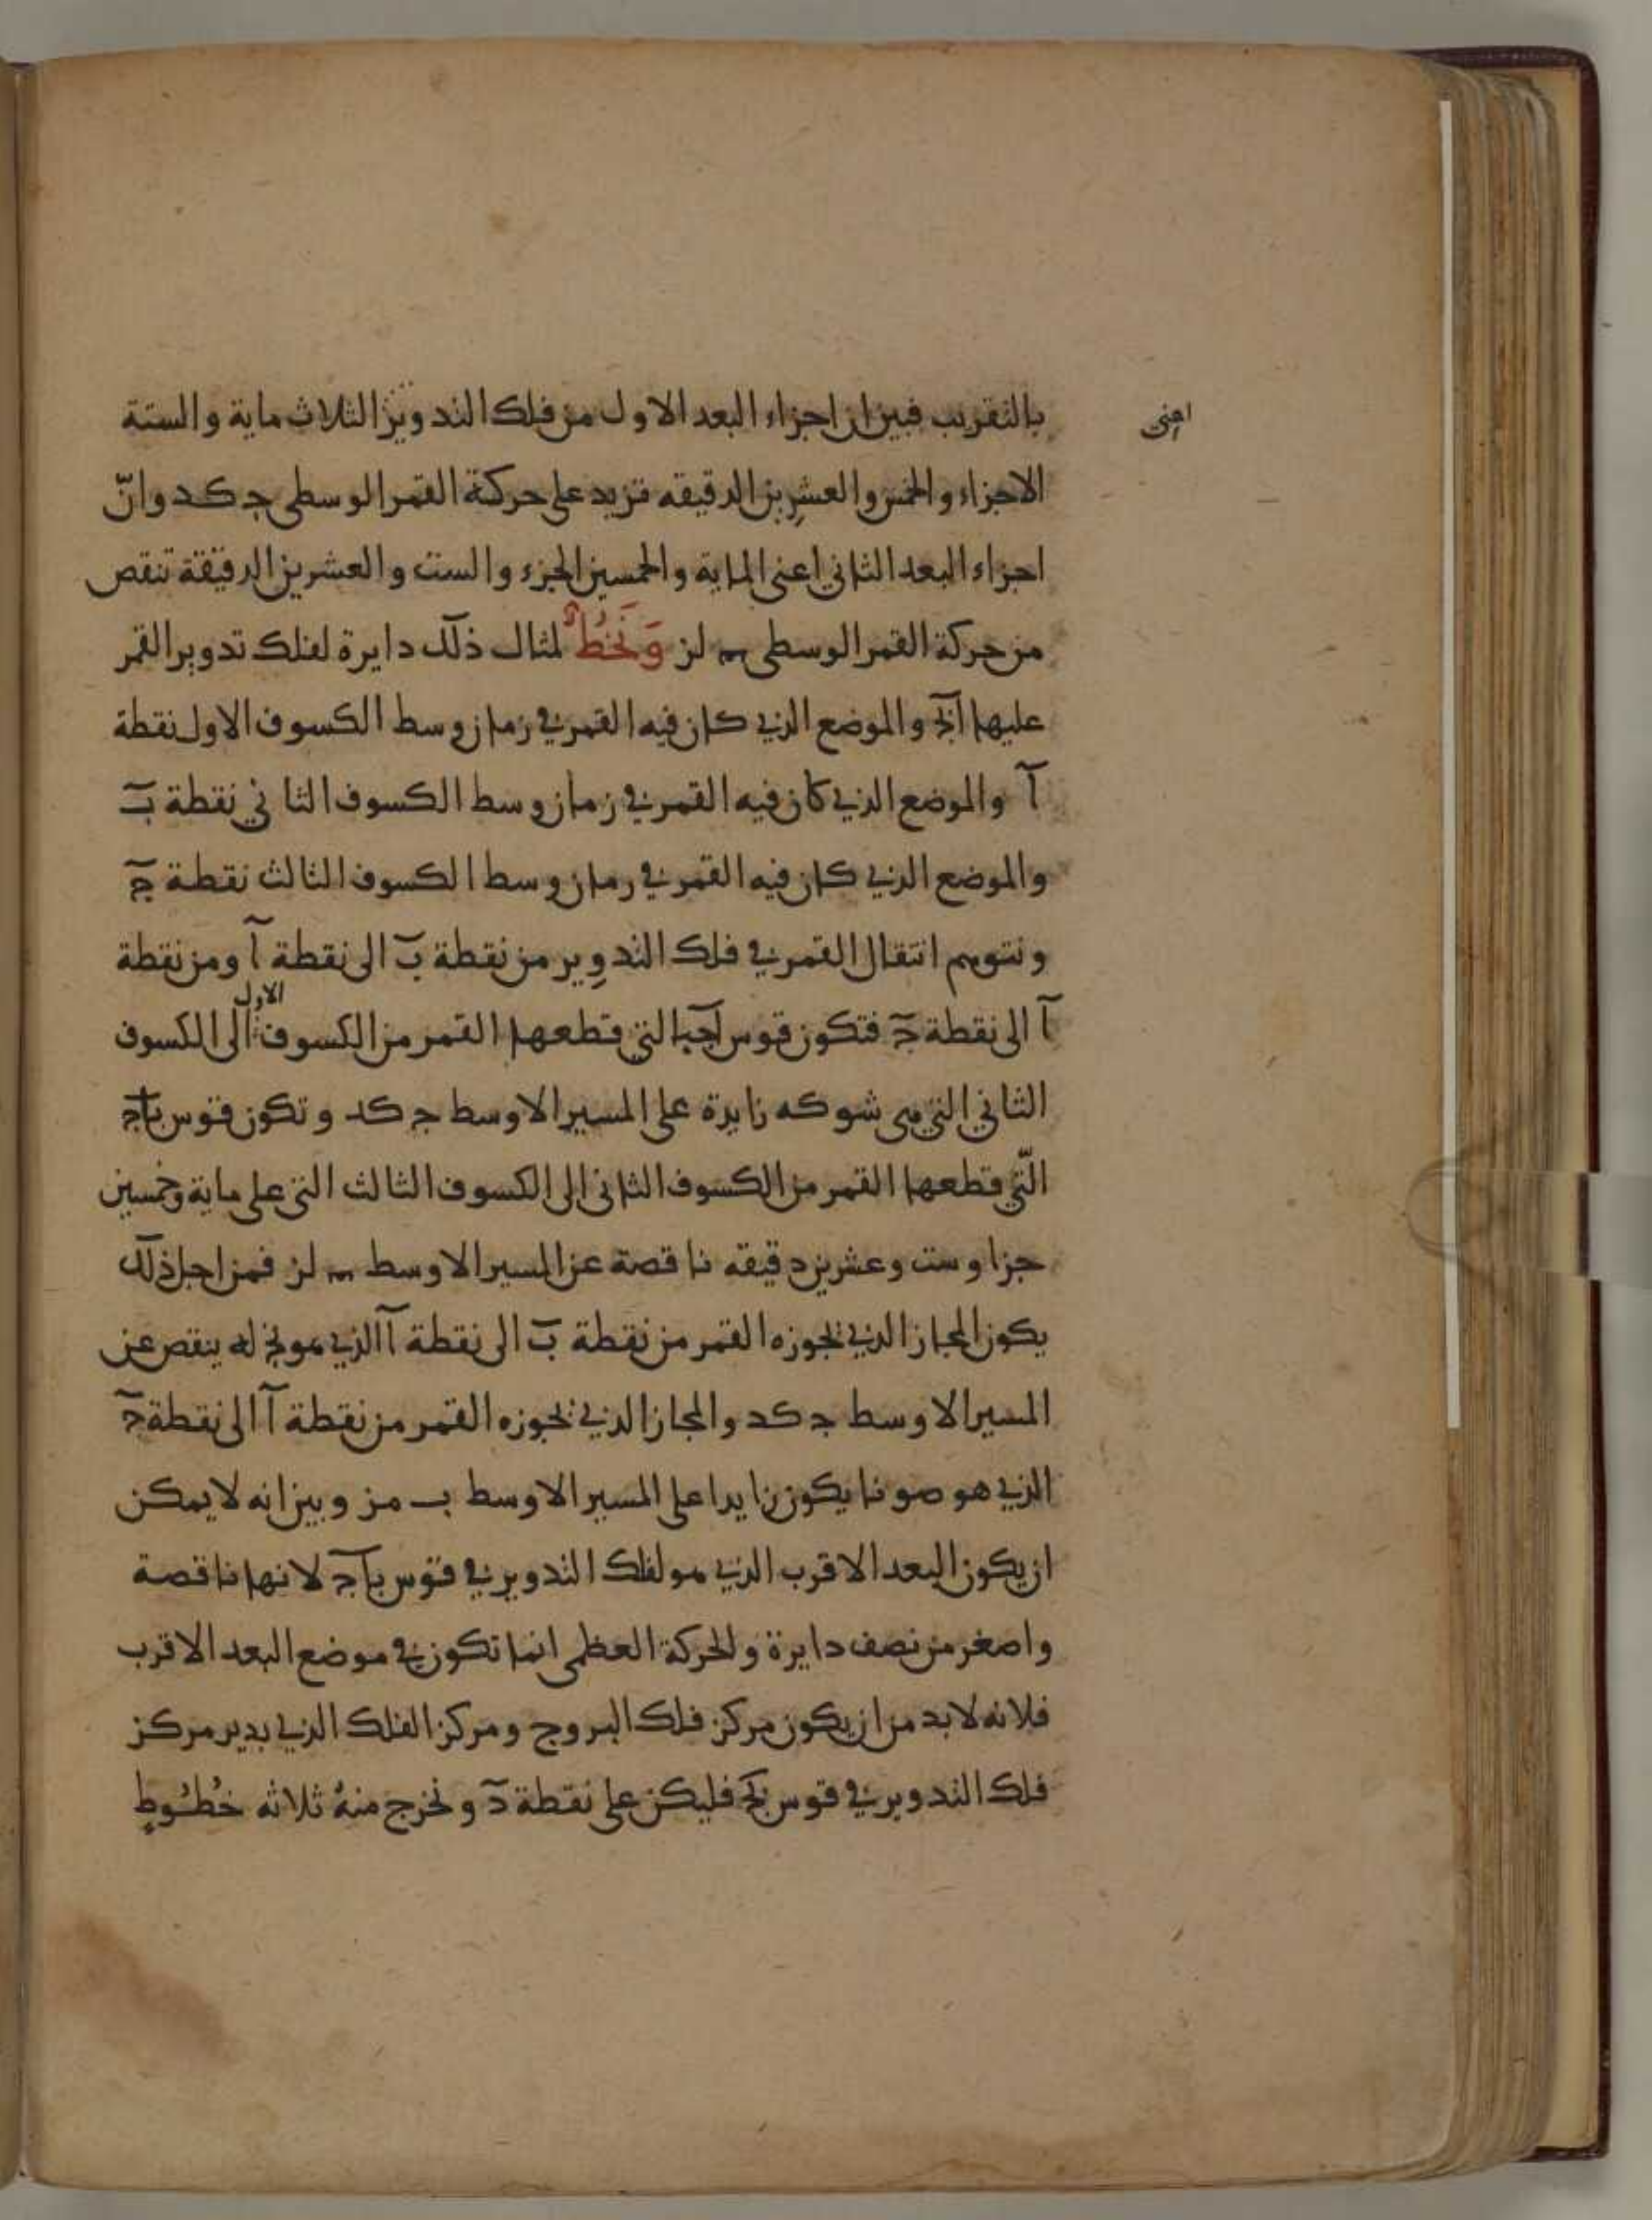 بالتقريب فبين ان اجزاء البعد الاول من فلك التدوير الثلاث ماية والستة
اعنى
الاجزاء والخمس والعشرين الدقيقه تزيد على حركة القمر الوسطى ج كد وانّ
اجزاء البعد الثاني اعنى الماية والخمسين الجزء والست والعشرين الدقيقة تنقص
من حركة القمر الوسطى لز وَنَخُطُّ لمثال ذلك دايرة لفلك تدوير القمر
عليها ابج والموضع الذي كان فيه القمر في زمان وسط الكسوف الاول نقطة
آ والموضع الذي كان فيه القمر في زمان وسط الكسوف الثاني نقطة ب
والموضع الذي كان فيه القمر في زمان وسط الكسوف الثالث نقطة ج
ونتوهم انتقال القمر في فلك التدوير من نقطة ب الى نقطة آ ومن نقطة
آ الى نقطة ج فتكون قوس اجب التي قطعها القمر من الكسوف الاول الى الكسوف
الثاني التي هى شو كه زايدة على المسير الاوسط ج كد وتكون قوس باج
الّتي قطعها القمر من الكسوف الثانى الى الكسوف الثالث التي على ماية وخمسين
جزا وست وعشرين دقيقه ناقصة عن المسير الاوسط لز فمن اجل ذلك
يكون المجاز الذي يجوزه القمر من نقطة ب الى نقطة آ الذي هو نج له ينقص عن
المسير الاوسط ج كد والمجاز الذي يجوزه القمر من نقطة آ الى نقطة ج
الذي هو صو نا يكون زايدا على المسير الاوسط ب مز وبين انه لا يمكن
ان يكون البعد الاقرب الذي هو لفلك التدوير في قوس باج لانها ناقصة
واصغر من نصف دايرة والحركة العظمى انما تكون في موضع البعد الاقرب
فلانه لا بد من ان يكون مركز فلك البروج ومركز الفلك الذي يدير مركز
فلك التدوير في قوس بج فليكن على نقطة د ونخرج منهُ ثلاثه خُطُوطٍ